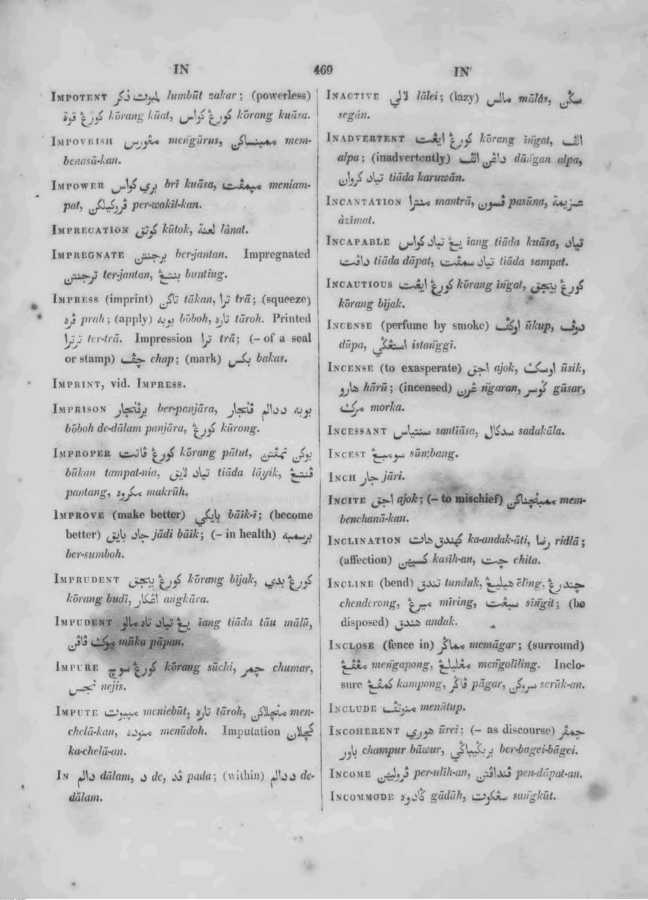 IN 469 IN
IMPOTENT لمبوت ذكر lumbūt zakar; (powerless)
كورڠ قوة kōrang kūat, كورڠ كواس kōrang kuāsa.
IMPOVRISH مڠورس meng̃ūrus, ممبيناساكن mem-
benasā-kan.
IMPOWER بري كواس brī kuāsa, ميمڤت meniam-
pat, ڤروكيلكن per-wakīl-kan.
IMPRECATION كوتق kūtok, لعنة lānat.
IMPREGNATE برجنتن ber-jantan. Impregnated
ترجنتن ter-jantan, بنتڠ bunting.
IMPRESS (imprint) تاكن tākan, ترا trā; (squeeze)
ڤره prah; (apply) بوبه bōboh, تاره tāroh. Printed
ترترا ter-trā. Impression ترا trā; (– of a seal
or stamp) چڤ chap; (mark) بكس bakas.
IMPRINT, vid. IMPRESS.
IMPRISON برڤنجار ber-panjāra, بوبه ددالم ڤنجار
bōboh de-dālam panjāra, كورڠ kūrong.
IMPROPER كورڠ ڤاتت kōrang pātut, بوكن تمڤتن
būkan tampat-nia, تياد لايق tiāda lāyik, ڤنتڠ
pantang, مكروه makrūh.
IMPROVE (make better) بايكي bāik-ī; (become
better) جاد بايق jādi bāik; (– in health) برسمبه
ber-sumboh.
IMPRUDENT كورڠ بيجق kōrang bījak, كورڠ بدي
kōrang budī, اڠكار angkāra.
IMPUDENT يڠ تياد تاه مالو īang tiāda tāu mālū,
موك ڤاڤن mūka pāpan.
IMPURE كورڠ سوچ kōrang sūchi, چمر chumar,
نجس nejis.
IMPUTE ميبوت meniebūt, تاره tāroh, منچلاكن men-
chelā-kan, منوده menūdoh. Imputation كچلان
ka-chelā-an.
IN دالم dālam, د de, ڤد pada; (within) ددالم de-
dālam.
INACTIVE لالي lālei; (lazy) مالس mālas, سگن
segān.
INADVERTENT كورڠ ايڠت kōrang ing̃at, الڤ
alpa; (inadvertently) داڠن الڤ dāng̃an alpa,
تياد كروان tiāda karuwān.
INCANTATION منترا mantrā, ڤسون pasūna, عزيمة
āzimat.
INCAPABLE يڠ تياد كواس īang tiāda kuāsa, تياد
داڤت tiāda dāpat, تياد سمڤت tiāda sampat.
INCAUTIOUS كورڠ ايڠت kōrang ing̃at, كورڠ بيجق
kōrang bījak.
INCENSE (perfume by smoke) اوكڤ ūkup, دوڤ
dūpa, استڠگي istang̃gi.
INCENSE (to exasperate) اجق ajok, اوسك ūsik,
هارو hārū; (incensed) ڠرن ng̃aran, گوسر gūsar,
مرك morka.
INCESSANT سنتياس santiāsa, سدكال sadakāla.
INCEST سومبڠ sūmbang.
INCH جار jāri.
INCITE اجق ajok; (– to mischief) ممبنچناكن mem-
benchanā-kan.
INCLINATION كهندق هات ka-andak-āti, رضا ridlā;
(affection) كسيهن kasīh-an, چت chita.
INCLINE (bend) تندق tunduk, هيليڠ ēling, چندرڠ
chenderong, ميرڠ mīring, سيڠت sing̃it; (be
disposed) هندق andak.
INCLOSE (fence in) مماگر memāgar; (surround)
مڠڤڠ meng̃apong, مڠليلڠ meng̃olīling. Inclo-
sure كمڤڠ kampong, ڤاگر pāgar, سروكن serūk-an.
INCLUDE منوتڤ menūtup.
INCOHERENT هوري ūrei; (– as discourse) چمڤر
باور champur bāwur, بربگيباگي ber-bagei-bāgei.
INCOME ڤروليهن per-ulīh-an, ڤنداڤتن pen-dāpat-an.
INCOMMODE گادوه gādūh, سڠكوت sang̃kūt.